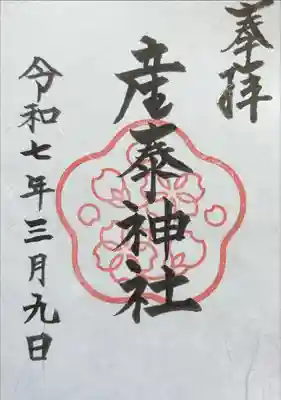 奉拝
産泰神社
令和七年三月九日